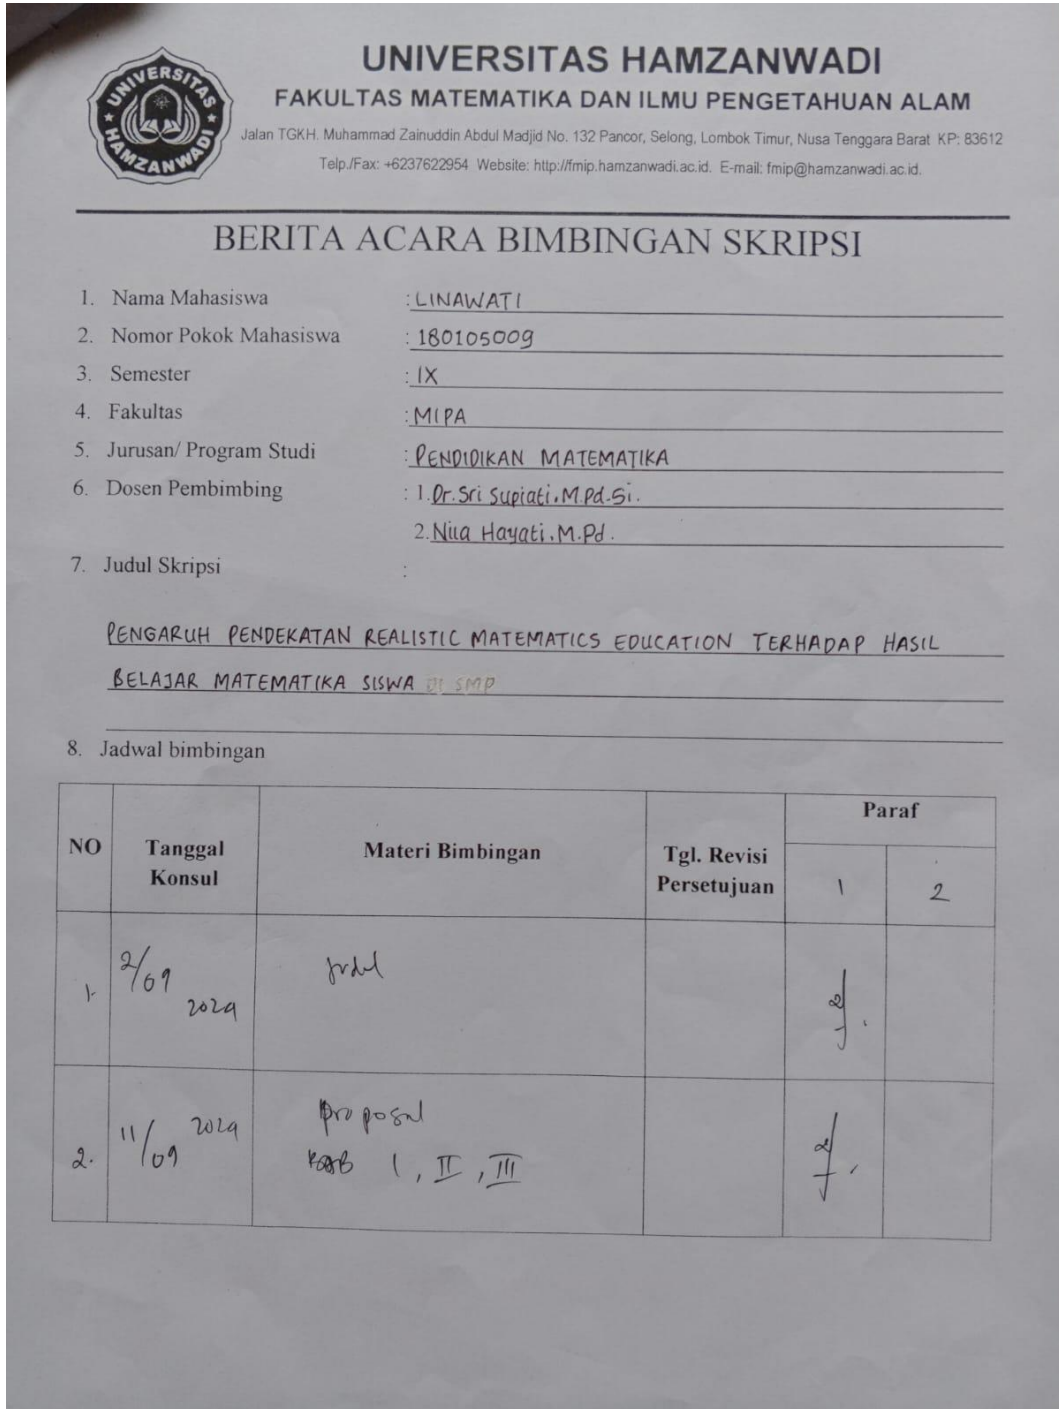 UNIVERSITAS HAMZANWADI
UNIVERSITAS HAMZANWADI
FAKULTAS MATEMATIKA DAN ILMU PENGETAHUAN ALAM
Jalan TGKH. Muhammad Zainuddin Abdul Madjid No. 132 Pancor, Selong, Lombok Timur, Nusa Tenggara Barat KP: 83612
Telp./Fax: +6237622954 Website: http://fmip.hamzanwadi.ac.id. E-mail: fmip@hamzanwadi.ac.id.
BERITA ACARA BIMBINGAN SKRIPSI
1. Nama Mahasiswa : LINAWATI
2. Nomor Pokok Mahasiswa : 180105009
3. Semester : IX
4. Fakultas : MIPA
5. Jurusan/ Program Studi : PENDIDIKAN MATEMATIKA
6. Dosen Pembimbing : 1. Dr. Sri Supiati, M.Pd.Si.
2. Nila Hayati, M.Pd.
7. Judul Skripsi :
PENGARUH PENDEKATAN REALISTIC MATEMATICS EDUCATION TERHADAP HASIL
BELAJAR MATEMATIKA SISWA DI SMP
8. Jadwal bimbingan
NO Tanggal Konsul Materi Bimbingan Tgl. Revisi Persetujuan Paraf
1 2
1. 2/09 2024 Judul
2. 11/09 2024 proposal
BAB I, II, III